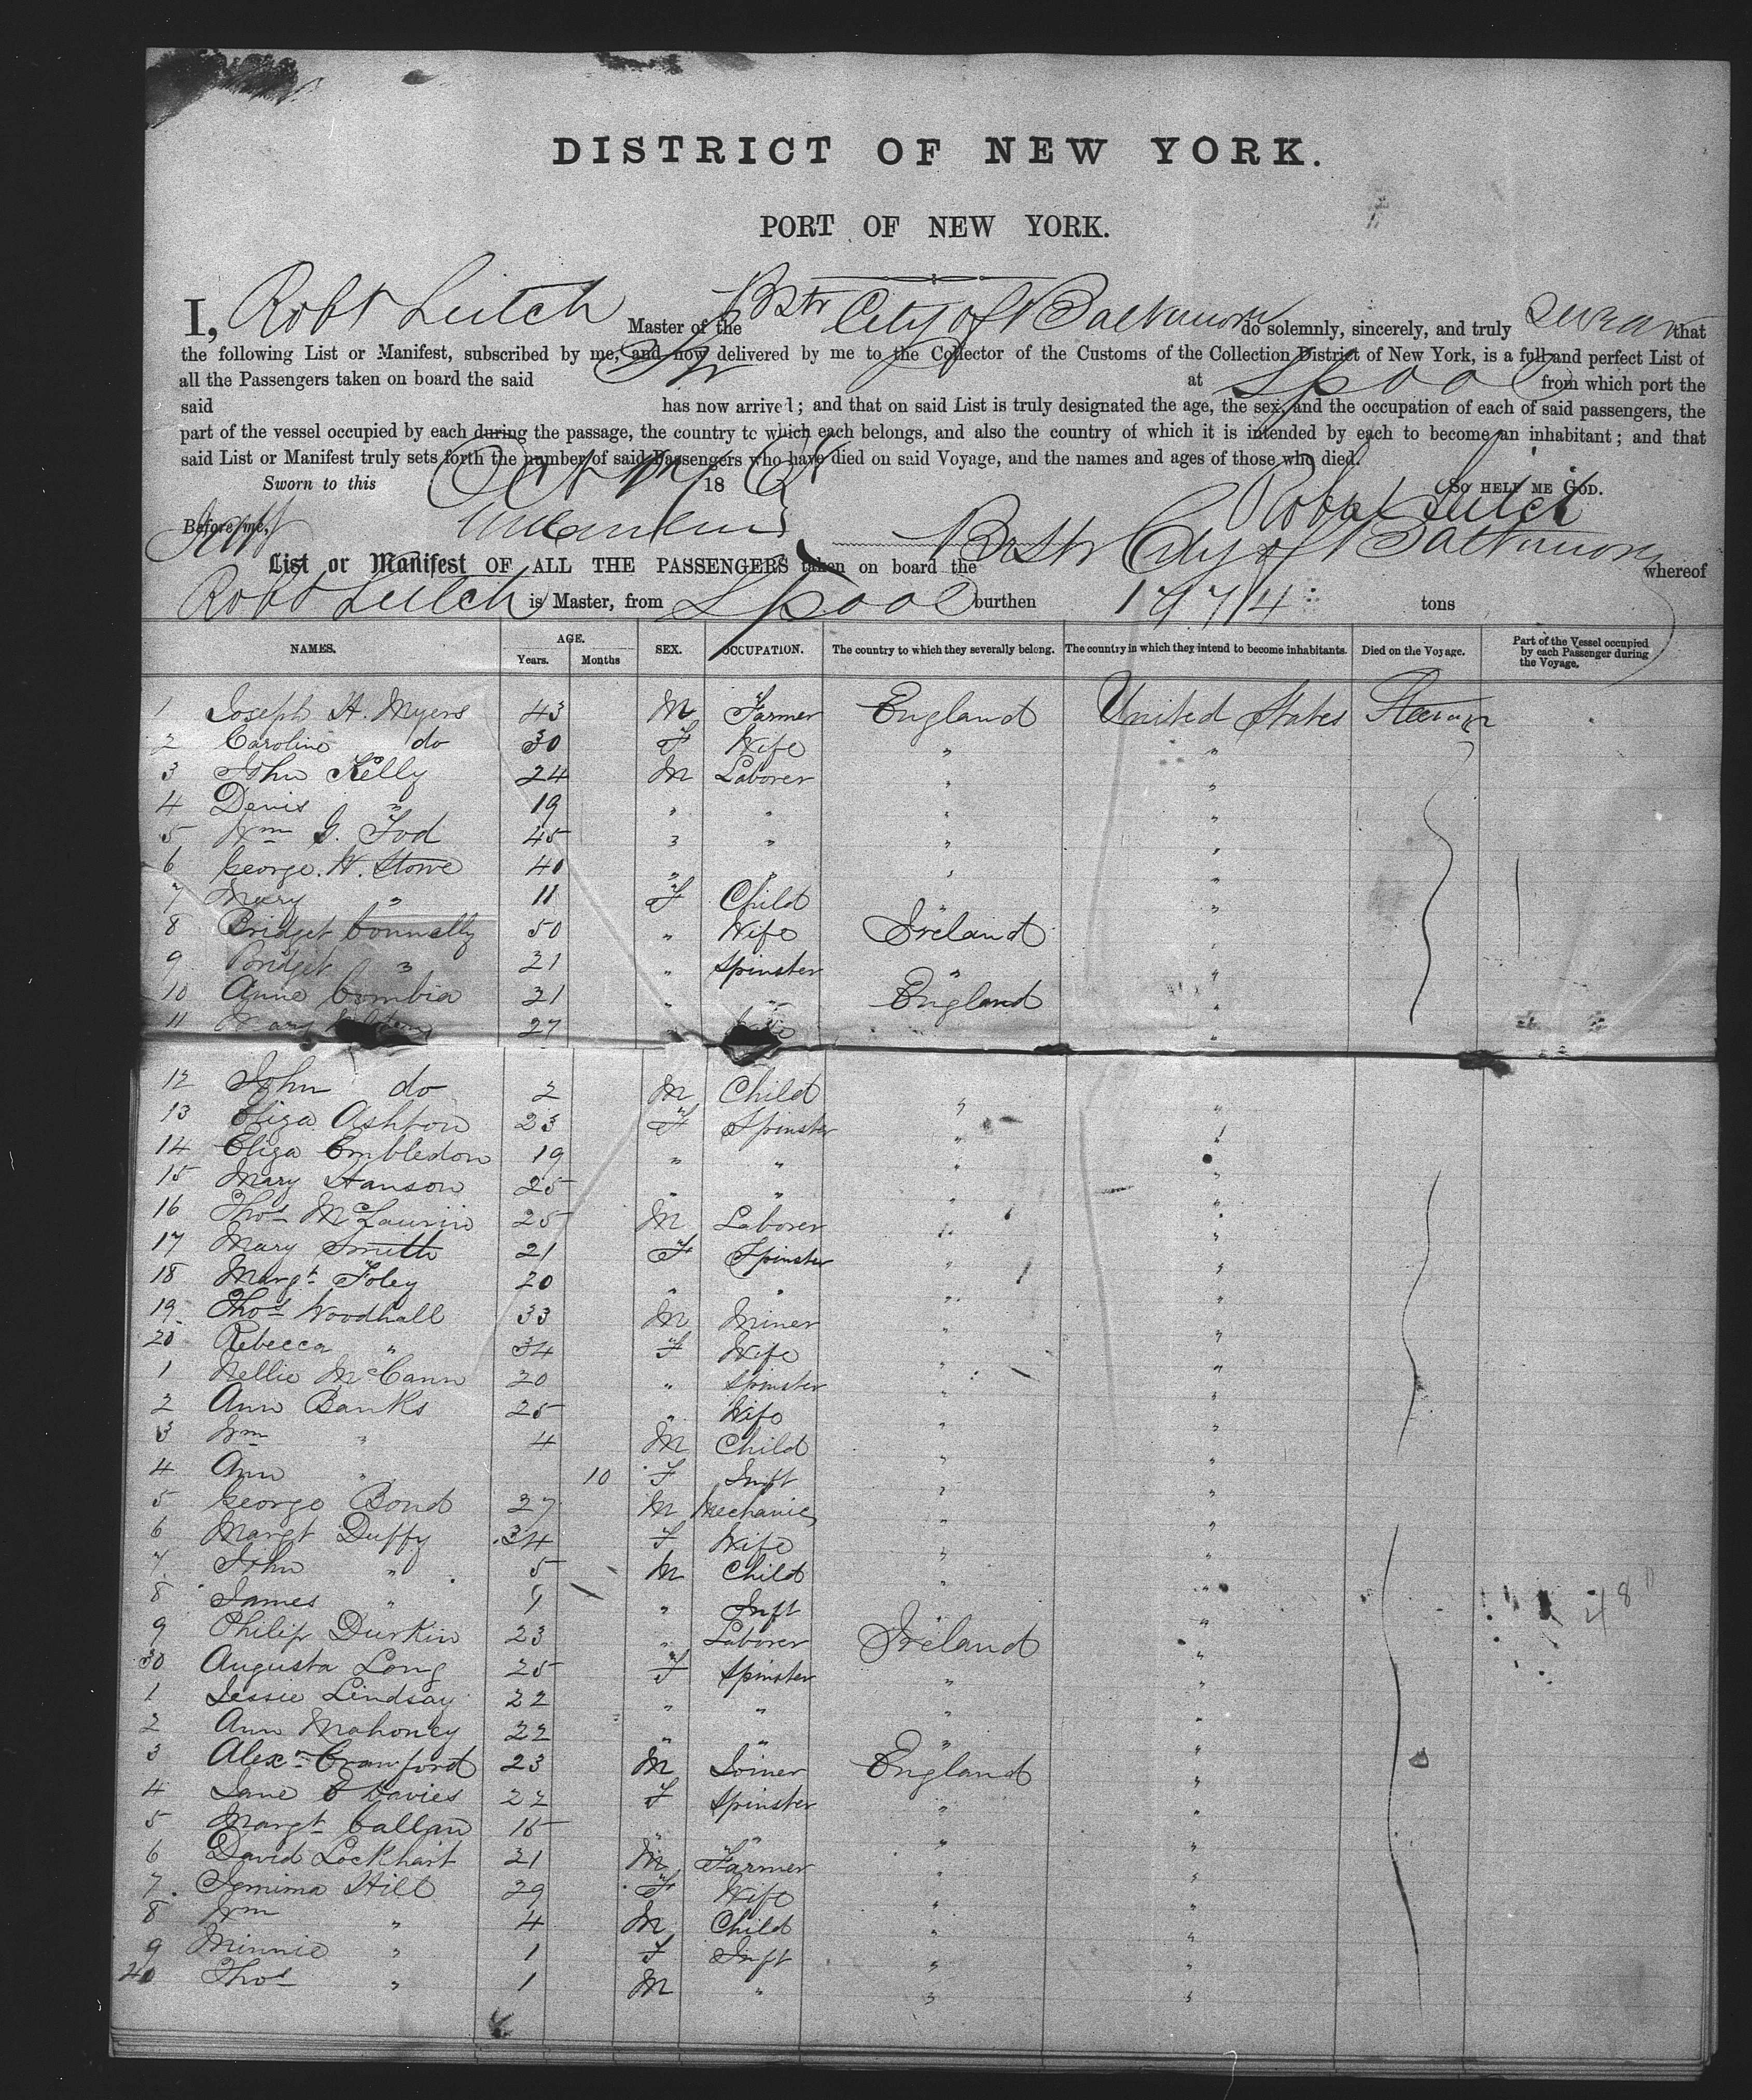 DISTRICT OF NEW YORK.
PORT OF NEW YORK.
I, Robt Leitch Master of the BStr City of Baltimore do solemnly, sincerely, and truly swear that
the following List or Manifest, subscribed by me, and now delivered by me to the Collector of the Customs of the Collection District of New York, is a full and perfect List of
all the Passengers taken on board the said Str at Lpool from which port the
said has now arrived; and that on said List is truly designated the age, the sex, and the occupation of each of said passengers, the
part of the vessel occupied by each during the passage, the country to which each belongs, and also the country of which it is intended by each to become an inhabitant; and that
said List or Manifest truly sets forth the number of said Passengers who have died on said Voyage, and the names and ages of those who died.
Sworn to this Oct 18 SO HELP ME GOD.
Robt Leitch
Before me,
List or Manifest OF ALL THE PASSENGERS taken on board the Br Str City of Baltimore whereof
Robt Leitch is Master, from Lpool burthen 1974 tons
NAMES. AGE. Years. Months SEX. OCCUPATION. The country to which they severally belong. The country in which they intend to become inhabitants. Died on the Voyage. Part of the Vessel occupied by each Passenger during the Voyage.
1 Joseph H. Myers 43 M Farmer England United States Steerage
2 Caroline do 30 F Wife " "
3 John Kelly 24 M Laborer " "
4 Denis " 19 " " " "
5 Wm G. Tod 45 " " " "
6 George. H. Stowe 40 " " " "
7 Mary " 11 F Child " "
8 Bridget Connelly 50 " Wife Ireland "
9 Bridget " 21 " Spinster " "
10 Anne Combia 21 " " England "
11 Mary 27 "
12 John do 2 M Child " "
13 Eliza Ashton 23 F Spinster " "
14 Eliza Embledon 19 " " " "
15 Mary Hanson 25 " " " "
16 Thos McLaurin 25 M Laborer " "
17 Mary Smith 21 F Spinster " "
18 Margt Foley 20 " " " "
19 Thos Woodhall 33 M Miner " "
20 Rebecca " 34 F Wife " "
1 Nellie McCann 20 " Spinster " "
2 Ann Banks 25 " Wife " "
3 Wm " 4 M Child " "
4 Ann " 10 F Inft " "
5 George Bond 27 M Mechanic " "
6 Margt Duffy 34 F Wife " "
7 John " 5 M Child " "
8 James " 1 " Inft " 48
9 Philip Durkin 23 " Laborer Ireland "
30 Augusta Long 25 F Spinster " "
1 Jessie Lindsay 22 " " " "
2 Ann Mahoney 22 " " " "
3 Alexr Crawford 23 M Joiner England "
4 Jane Davies 22 F Spinster " "
5 Margt Callan 18 " " " "
6 David Lockhart 21 M Farmer " "
7 Jemima Hill 29 F Wife " "
8 Wm " 4 M Child " "
9 Minnie " 1 F Inft " "
40 Thos " 1 M " " "